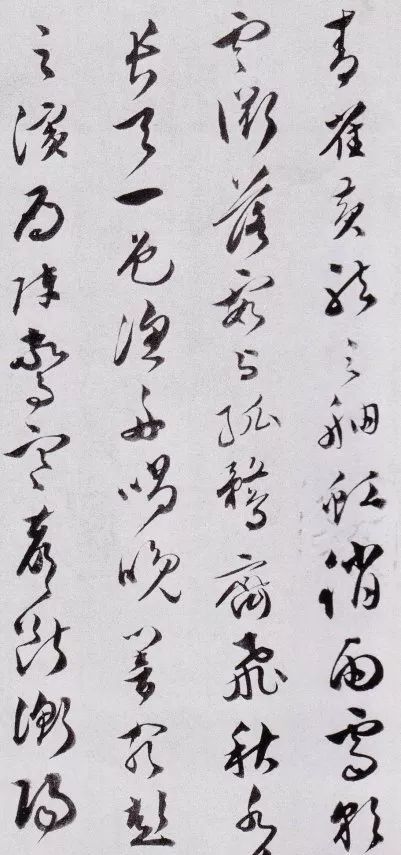 青雀黄龍之舳虹銷雨霽彩
雲衢落霞与孤鶩齊飛秋水
長天一色漁舟唱晚響窮彭
之濱雁陣驚寒聲斷衡陽